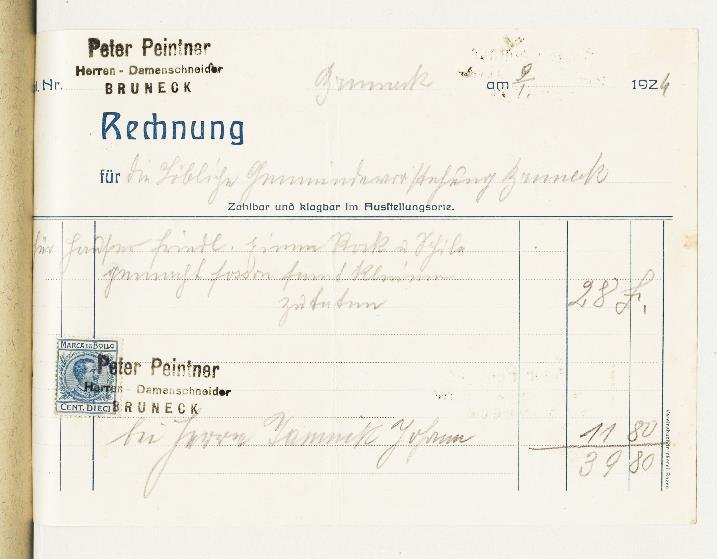 Peter Peintner
Herren - Damenschneider
BRUNECK
Nr. Bruneck am 9/1. 1924
Rechnung
für die Löbliche Gemeindevorstehung Bruneck
Zahlbar und klagbar im Ausstellungsorte.
für Hauser Friedl. einen Rock u
gemacht samt kleinen
zutaten 28 £.
MARCA DA BOLLO
CENT. DIECI
Peter Peintner
Herren - Damenschneider
BRUNECK
bei Herrn Johann 11 80
39 80